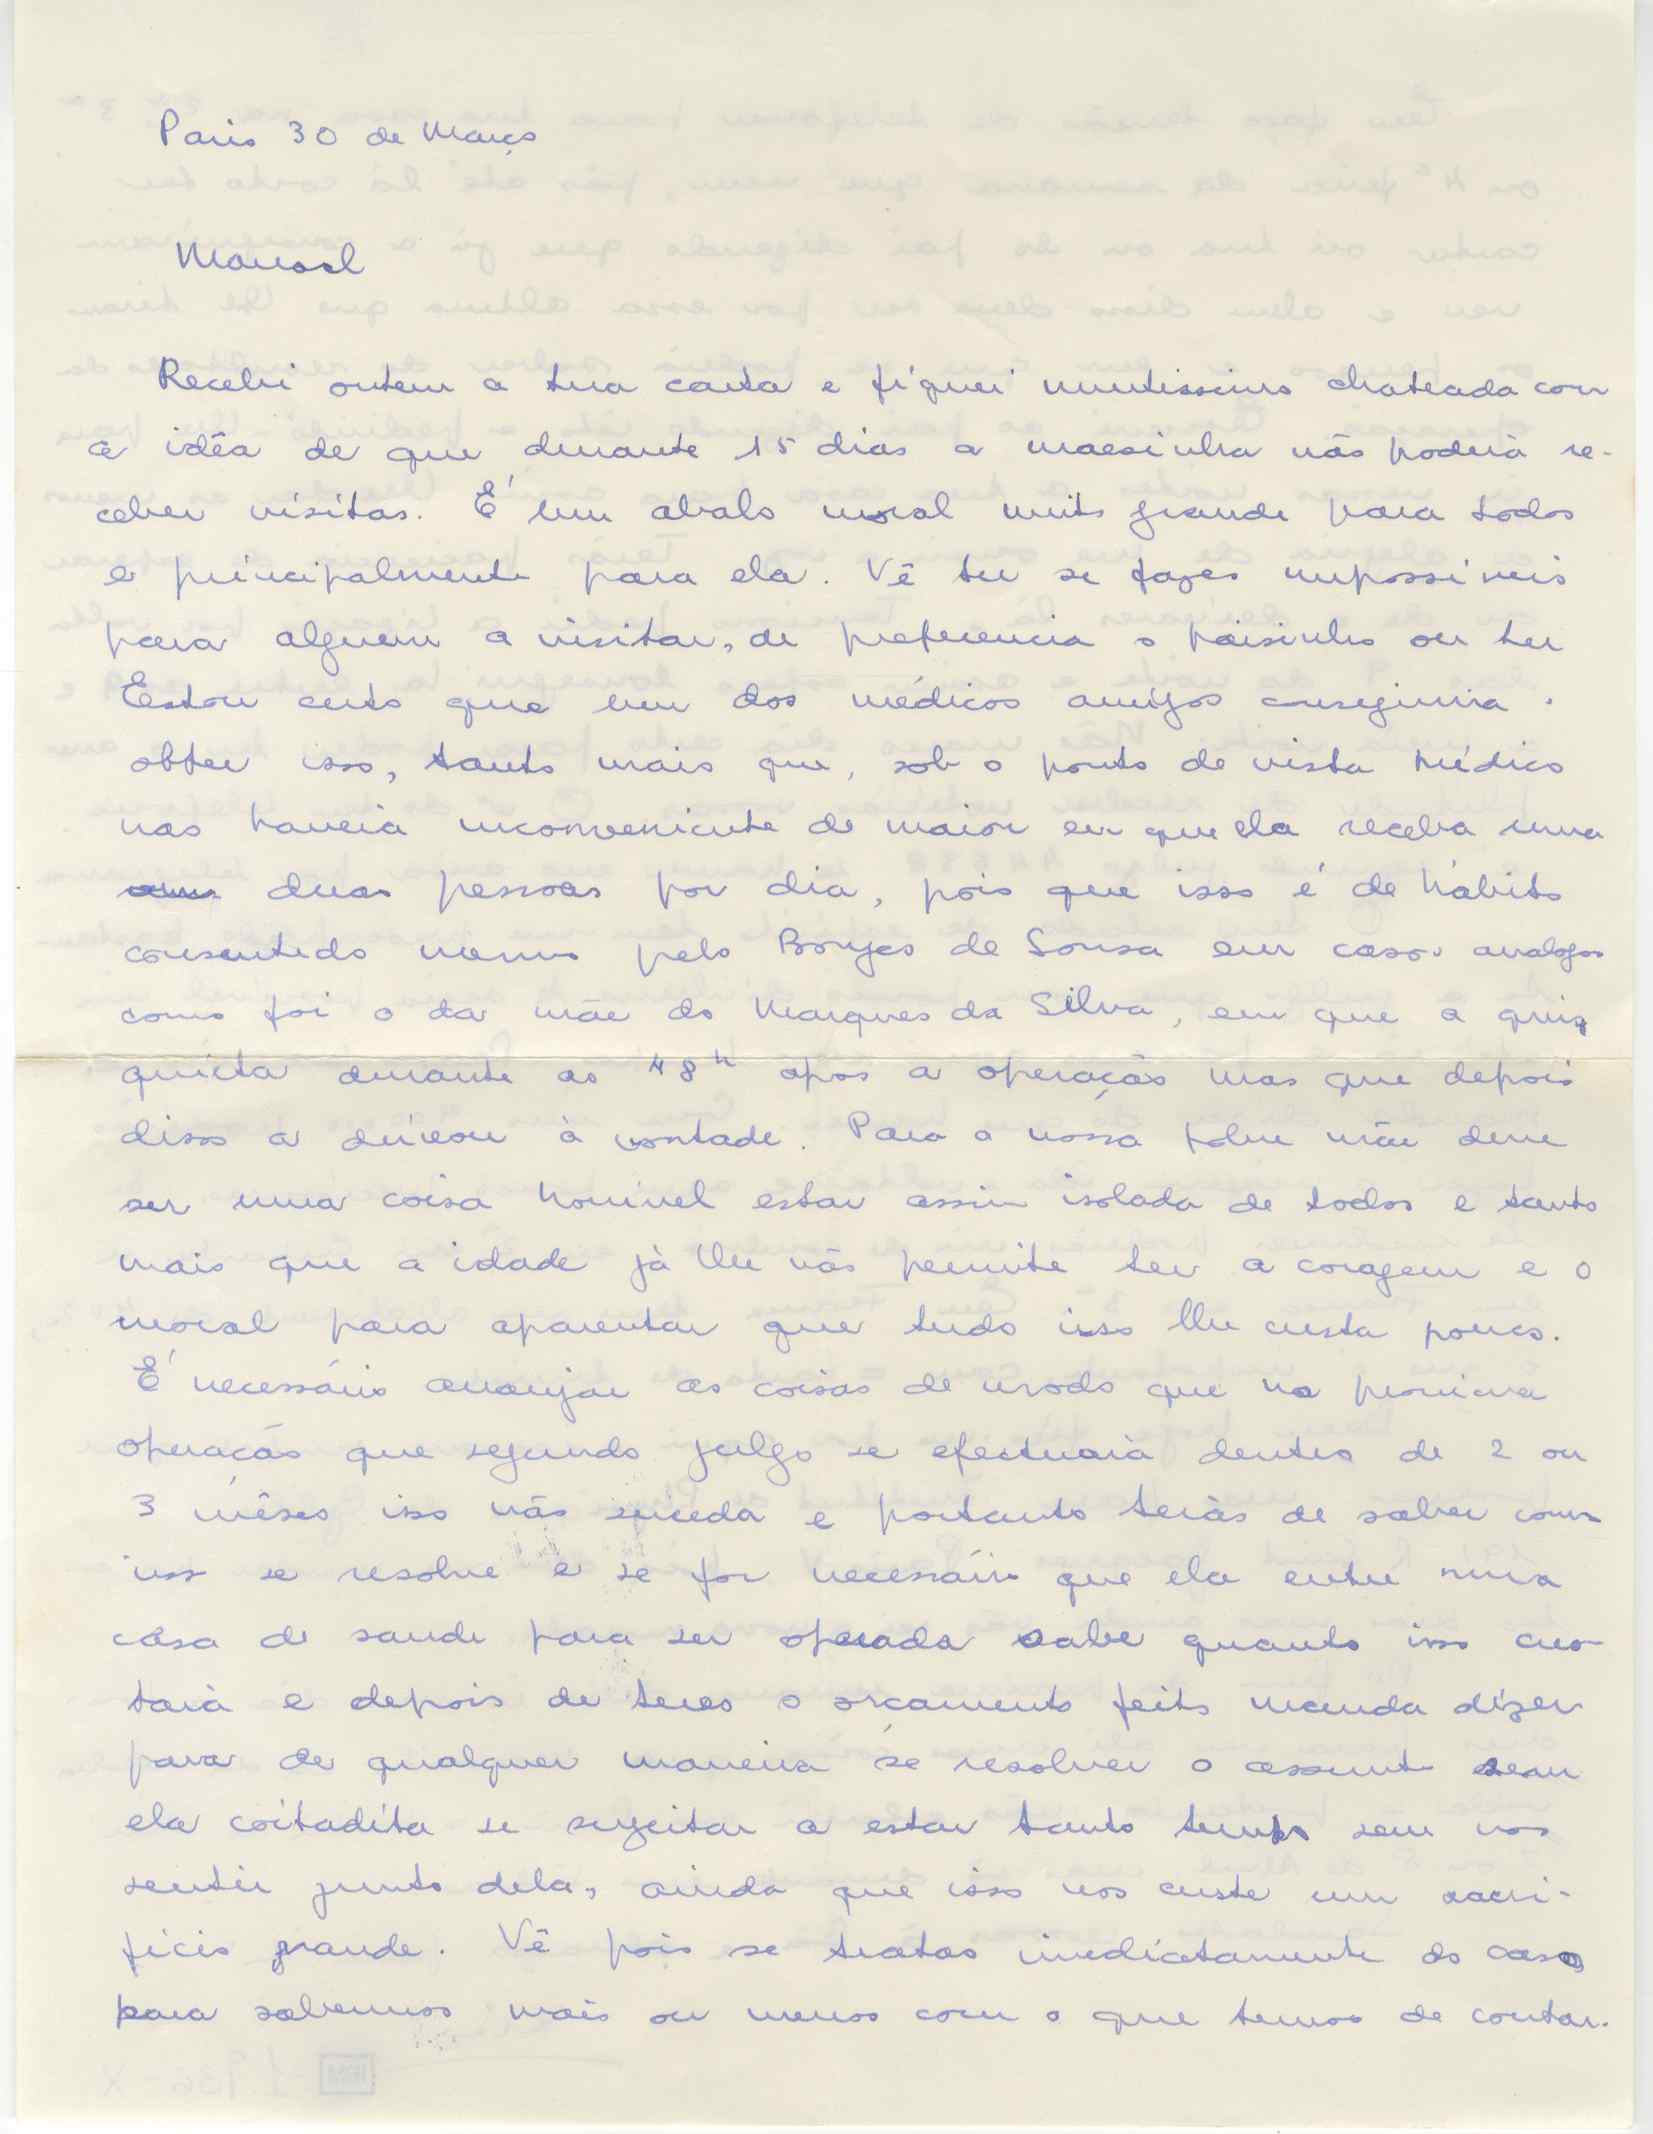 Paris 30 de Março
Manoel
Recebi ontem a tua carta e fiquei muitissimo chateada com
a idêa de que durante 15 dias a maesinha não poderà re-
ceber visitas. É um abalo moral muito grande para todos
e principalmente para ela. Vê tu se fazes impossiveis
para alguem a visitar, de preferencia o paisinho ou tu
Estou certo que um dos médicos amigos conseguiria
obter isso, tanto mais que, sob o ponto de vista médico
nao haveria inconveniente de maior em que ela receba uma
duas pessoas por dia, pois que isso é de hábito
consentido mesmo pelo Borges de Sousa em casos analogos
como foi o da mãe do Marques da Silva, em que a quiz
quieta durante as 48h apos a operação mas que depois
disso a deixou à vontade. Para a nossa pobre mãe deve
ser uma coisa horrivel estar assim isolada de todos e tanto
mais que a idade jà lhe não permite ter a coragem e o
moral para aparentar que tudo isso lhe custa pouco.
É necessário arranjar as coisas de modo que na proxima
operação que segundo julgo se efectuarà dentro de 2 ou
3 mêses isso não suceda e portanto teràs de saber como
isso se resolve e se for necessário que ela entre numa
casa de saude para ser operada sabe quanto isso cus-
tarà e depois de teres o orçamento feito manda dizer
para de qualquer maneira se resolver o assunto sem
ela coitadita se sugeitar a estar tanto tempo sem nos
sentir junto dela, ainda que isso nos custe um sacri-
ficio grande. Vê pois se tratas imediatamente do caso
para sabermos mais ou menos com o que temos de contar.